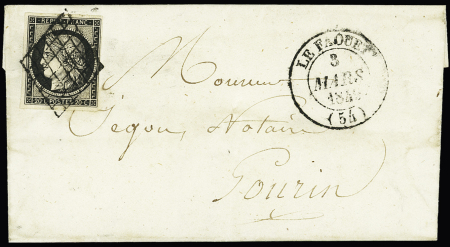 REPUB. FRANC.
20 c. POSTES 20 c.
LE FAOUET
3
MARS
(54)
Monsieur
Segou, Notaire
Gourin